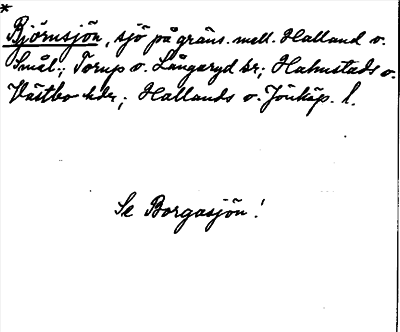 *
Björnsjön, sjö på gräns. mell. Halland o.
Smål.; Torup o. Långaryd sr; Halmstads o.
Västbo hdr; Hallands o. Jönköp. l.
Se Borgasjön!